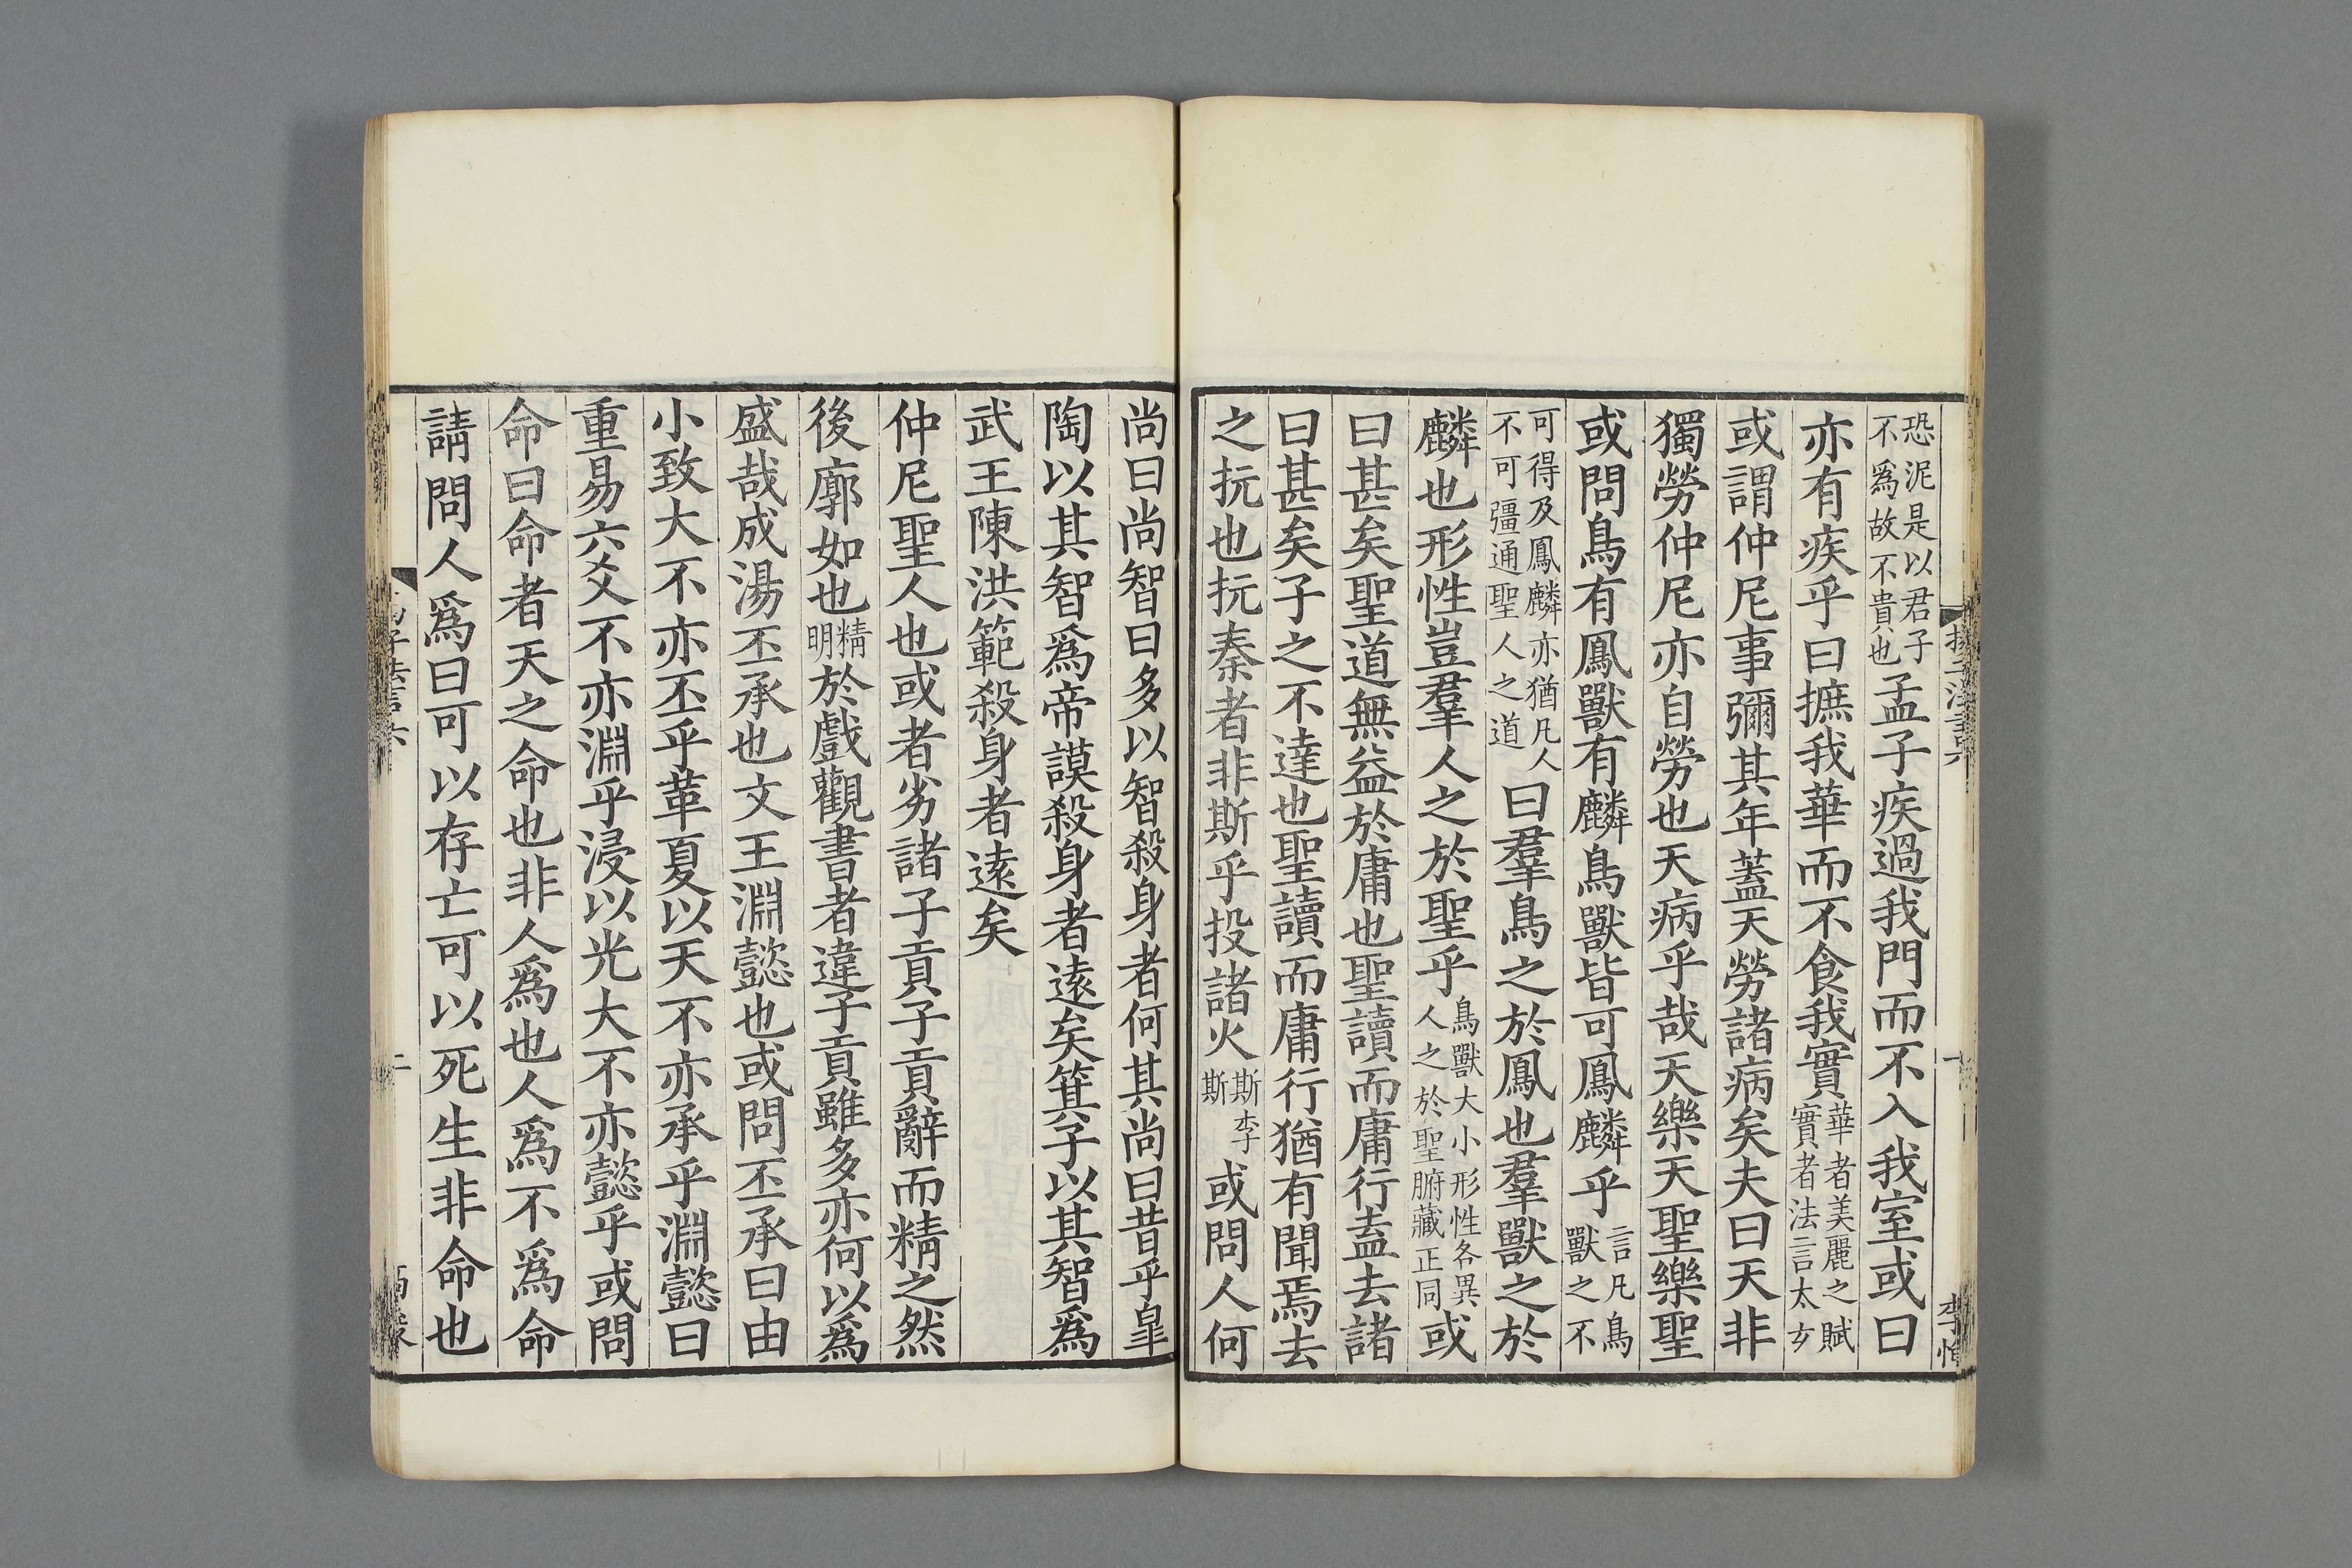 恐泥是以君子
不爲故不貴也
孟子疾過我門而不入我室或曰
亦有疾乎曰摭我華而不食我實
華者美麗之賦
實者法言太玄
或謂仲尼事彌其年蓋天勞諸病矣夫曰天非
獨勞仲尼亦自勞也天病乎哉天樂天聖樂聖
或問鳥有鳳獸有麟鳥獸皆可鳳麟乎
言凡鳥
獸之不
可得及鳳麟亦猶凡人
不可彊通聖人之道
曰羣鳥之於鳳也羣獸之於
麟也形性豈羣人之於聖乎
鳥獸大小形性各異
人之於聖腑藏正同
或
曰甚矣聖道無益於庸也聖讀而庸行盍去諸
曰甚矣子之不達也聖讀而庸行猶有聞焉去
之抏也抏秦者非斯乎投諸火
斯李
斯
或問人何
尚曰尚智曰多以智殺身者何其尚曰昔乎皐
陶以其智爲帝謨殺身者遠矣箕子以其智爲
武王陳洪範殺身者遠矣
仲尼聖人也或者劣諸子貢子貢辭而精之然
後廓如也
精
明
於戲觀書者違子貢雖多亦何以爲
盛哉成湯丕承也文王淵懿也或問丕承曰由
小致大不亦丕乎革夏以天不亦承乎淵懿曰
重易六爻不亦淵乎浸以光大不亦懿乎或問
命曰命者天之命也非人爲也人爲不爲命
請問人爲曰可以存亡可以死生非命也